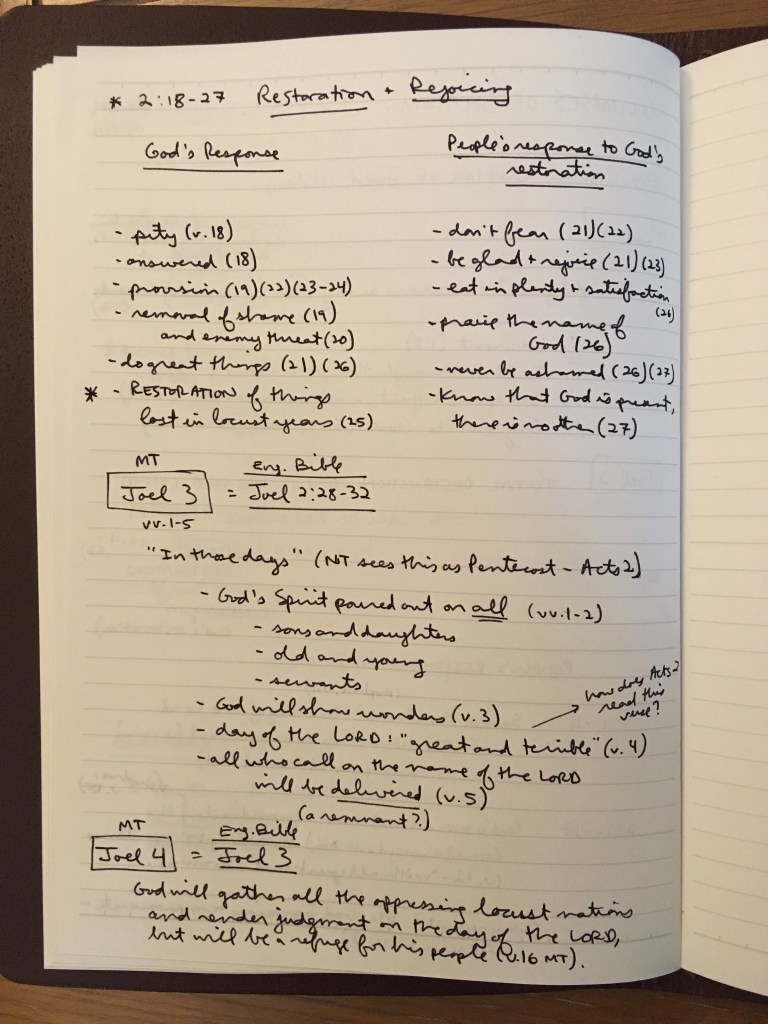 * 2:18-27 Restoration + Rejoicing
God's Response
People's response to God's
restoration
- pity (v.18)
- answered (18)
- provision (19)(22)(23-24)
- removal of shame (19)
and enemy threat (20)
- do great things (21)(26)
* - RESTORATION of things
lost in locust years (25)
- don't fear (21)(22)
- be glad + rejoice (21)(23)
- eat in plenty + satisfaction
(26)
- praise the name of
God (26)
- never be ashamed (26)(27)
- Know that God is present,
there is no other (27)
MT
Joel 3
vv.1-5
=
Eng. Bible
Joel 2:28-32
"In those days" (NT sees this as Pentecost - Acts 2)
- God's Spirit poured out on all (vv.1-2)
- sons and daughters
- old and young
- servants
- God will show wonders (v.3)
how does Acts 2
read this
verse?
- day of the LORD: "great and terrible" (v.4)
- all who call on the name of the LORD
will be delivered (v.5)
(a remnant?)
MT
Joel 4
=
Eng. Bible
Joel 3
God will gather all the oppressing locust nations
and render judgment on the day of the LORD,
but will be a refuge for his people (v.16 MT).